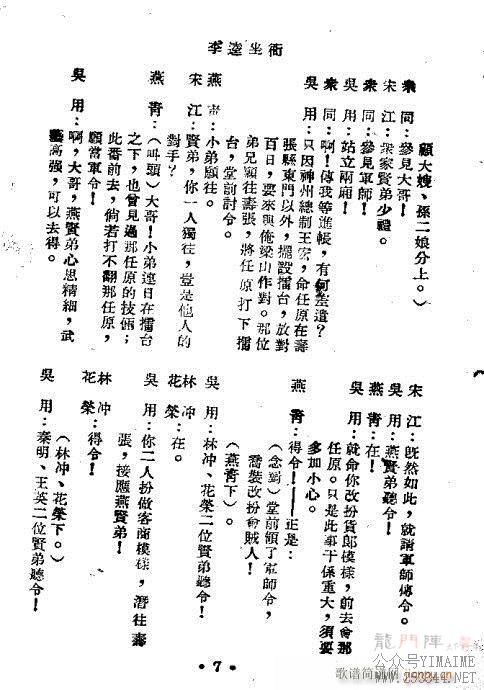 李逵坐衙
顧大嫂、孫二娘分上。)
衆　同：參見大哥！
宋　江：衆家賢弟少禮。
衆　同：參見軍師！
吳　用：站立兩廂！
衆　同：啊！傳我等進帳，有何差遣？
吳　用：只因神州總制王宏，命任原在壽
張縣東門以外，擺設擂台，放對
百日，要來與俺梁山作對。那位
弟兄願往壽張，將任原打下擂
台，堂前討令。
燕　青：小弟願往。
宋　江：賢弟，你一人獨往，豈是他人的
對手？
燕　青：(叫頭)大哥！小弟連日在擂台
之下，也曾見過那任原的技倆；
此番前去，倘若打不翻那任原，
願當軍令！
吳　用：啊，大哥，燕賢弟心思精細，武
藝高强，可以去得。
宋　江：旣然如此，就請軍師傳令。
吳　用：燕賢弟聽令！
燕　青：在！
吳　用：就命你改扮貨郎模樣，前去會那
任原。只是此事干係重大，須要
多加小心。
燕　青：得令！——正是：
(念對)堂前領了軍師令，
喬裝改扮會賊人！
(燕青下)。
吳　用：林冲、花榮二位賢弟聽令！
林　冲
花　榮：在。
吳　用：你二人扮做客商模樣，潛往壽
張，接應燕賢弟！
林　冲
花　榮：得令！
(林冲、花榮下。)
吳　用：秦明、王英二位賢弟聽令！
• 7 •
龍門陣
公众号YIMAIME
歌谱简谱网 jianpu.cn